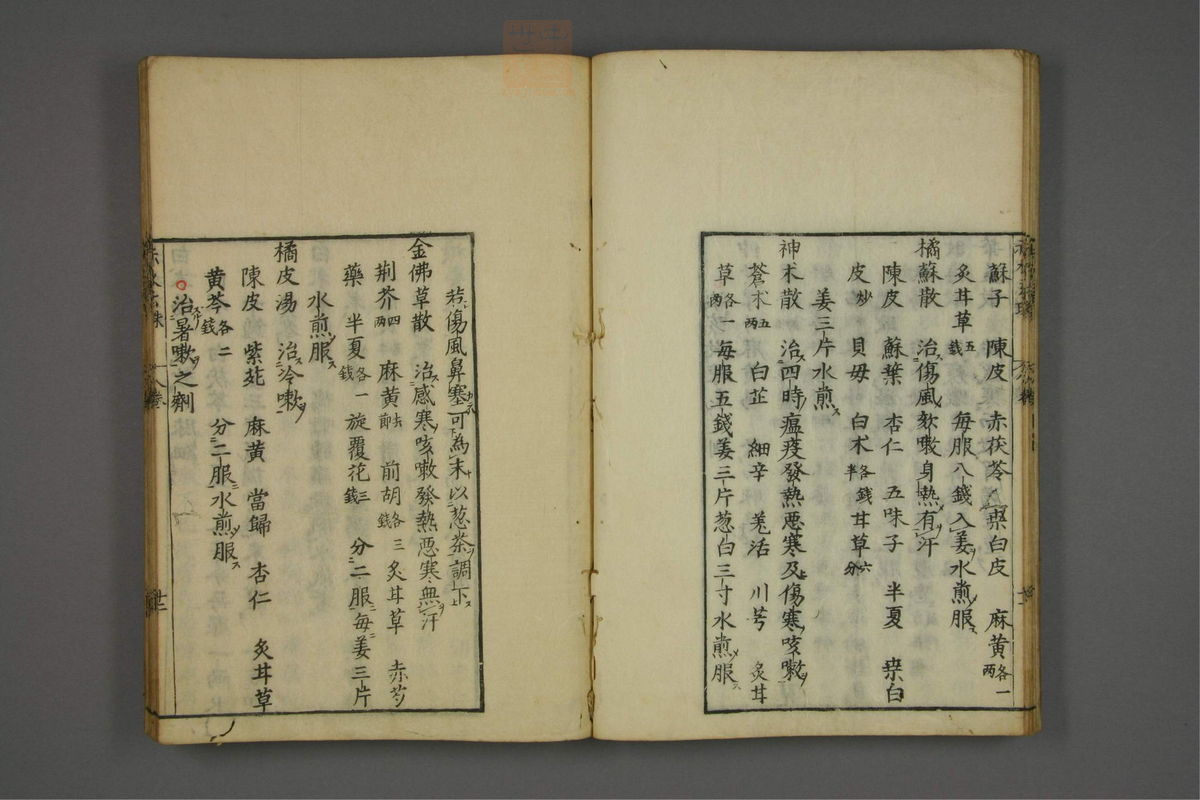 蘇子 陳皮 赤茯苓 桒白皮 麻黄各一两
炙甘草五錢 每服八錢入姜水煎服
橘蘇散 治傷風欬嗽身熱有汗
陳皮 蘇葉 杏仁 五味子 半夏 桒白
皮炒 貝母 白术各錢半 甘草六分
姜三片水煎
神术散 治四時瘟疫發熱悪寒及傷寒咳嗽
蒼术五两 白芷 細辛 羗活 川芎 炙甘
草各一两 每服五錢姜三片葱白三寸水煎服
若傷風鼻塞可為末以葱茶調下
金佛草散 治感寒咳嗽發熱悪寒無汗
荆芥四两 麻黄去節 前胡各三錢 炙甘草 赤芍
藥 半夏各一錢 旋覆花三錢 分二服每姜三片
水煎服
橘皮湯 治冷嗽
陳皮 紫菀 麻黄 當歸 杏仁 炙甘草
黄芩各二錢 分二服水煎服
治暑嗽之劑